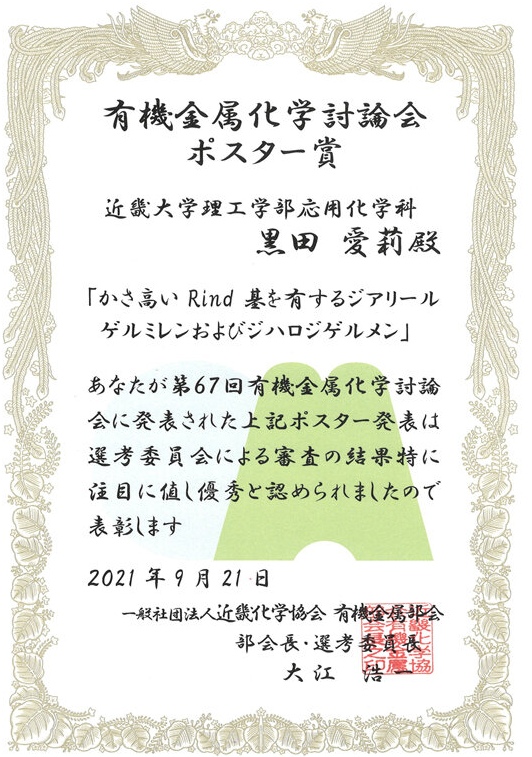 有機金属化学討論会
ポスター賞
近畿大学理工学部応用化学科
黒田 愛莉殿
「かさ高い Rind 基を有するジアリール
ゲルミレンおよびジハロジゲルメン」
あなたが第67回有機金属化学討論
会に発表された上記ポスター発表は
選考委員会による審査の結果特に
注目に値し優秀と認められましたので
表彰します
2021 年 9 月 21 日
一般社団法人近畿化学協会 有機金属部会
部会長・選考委員長
大江 浩一